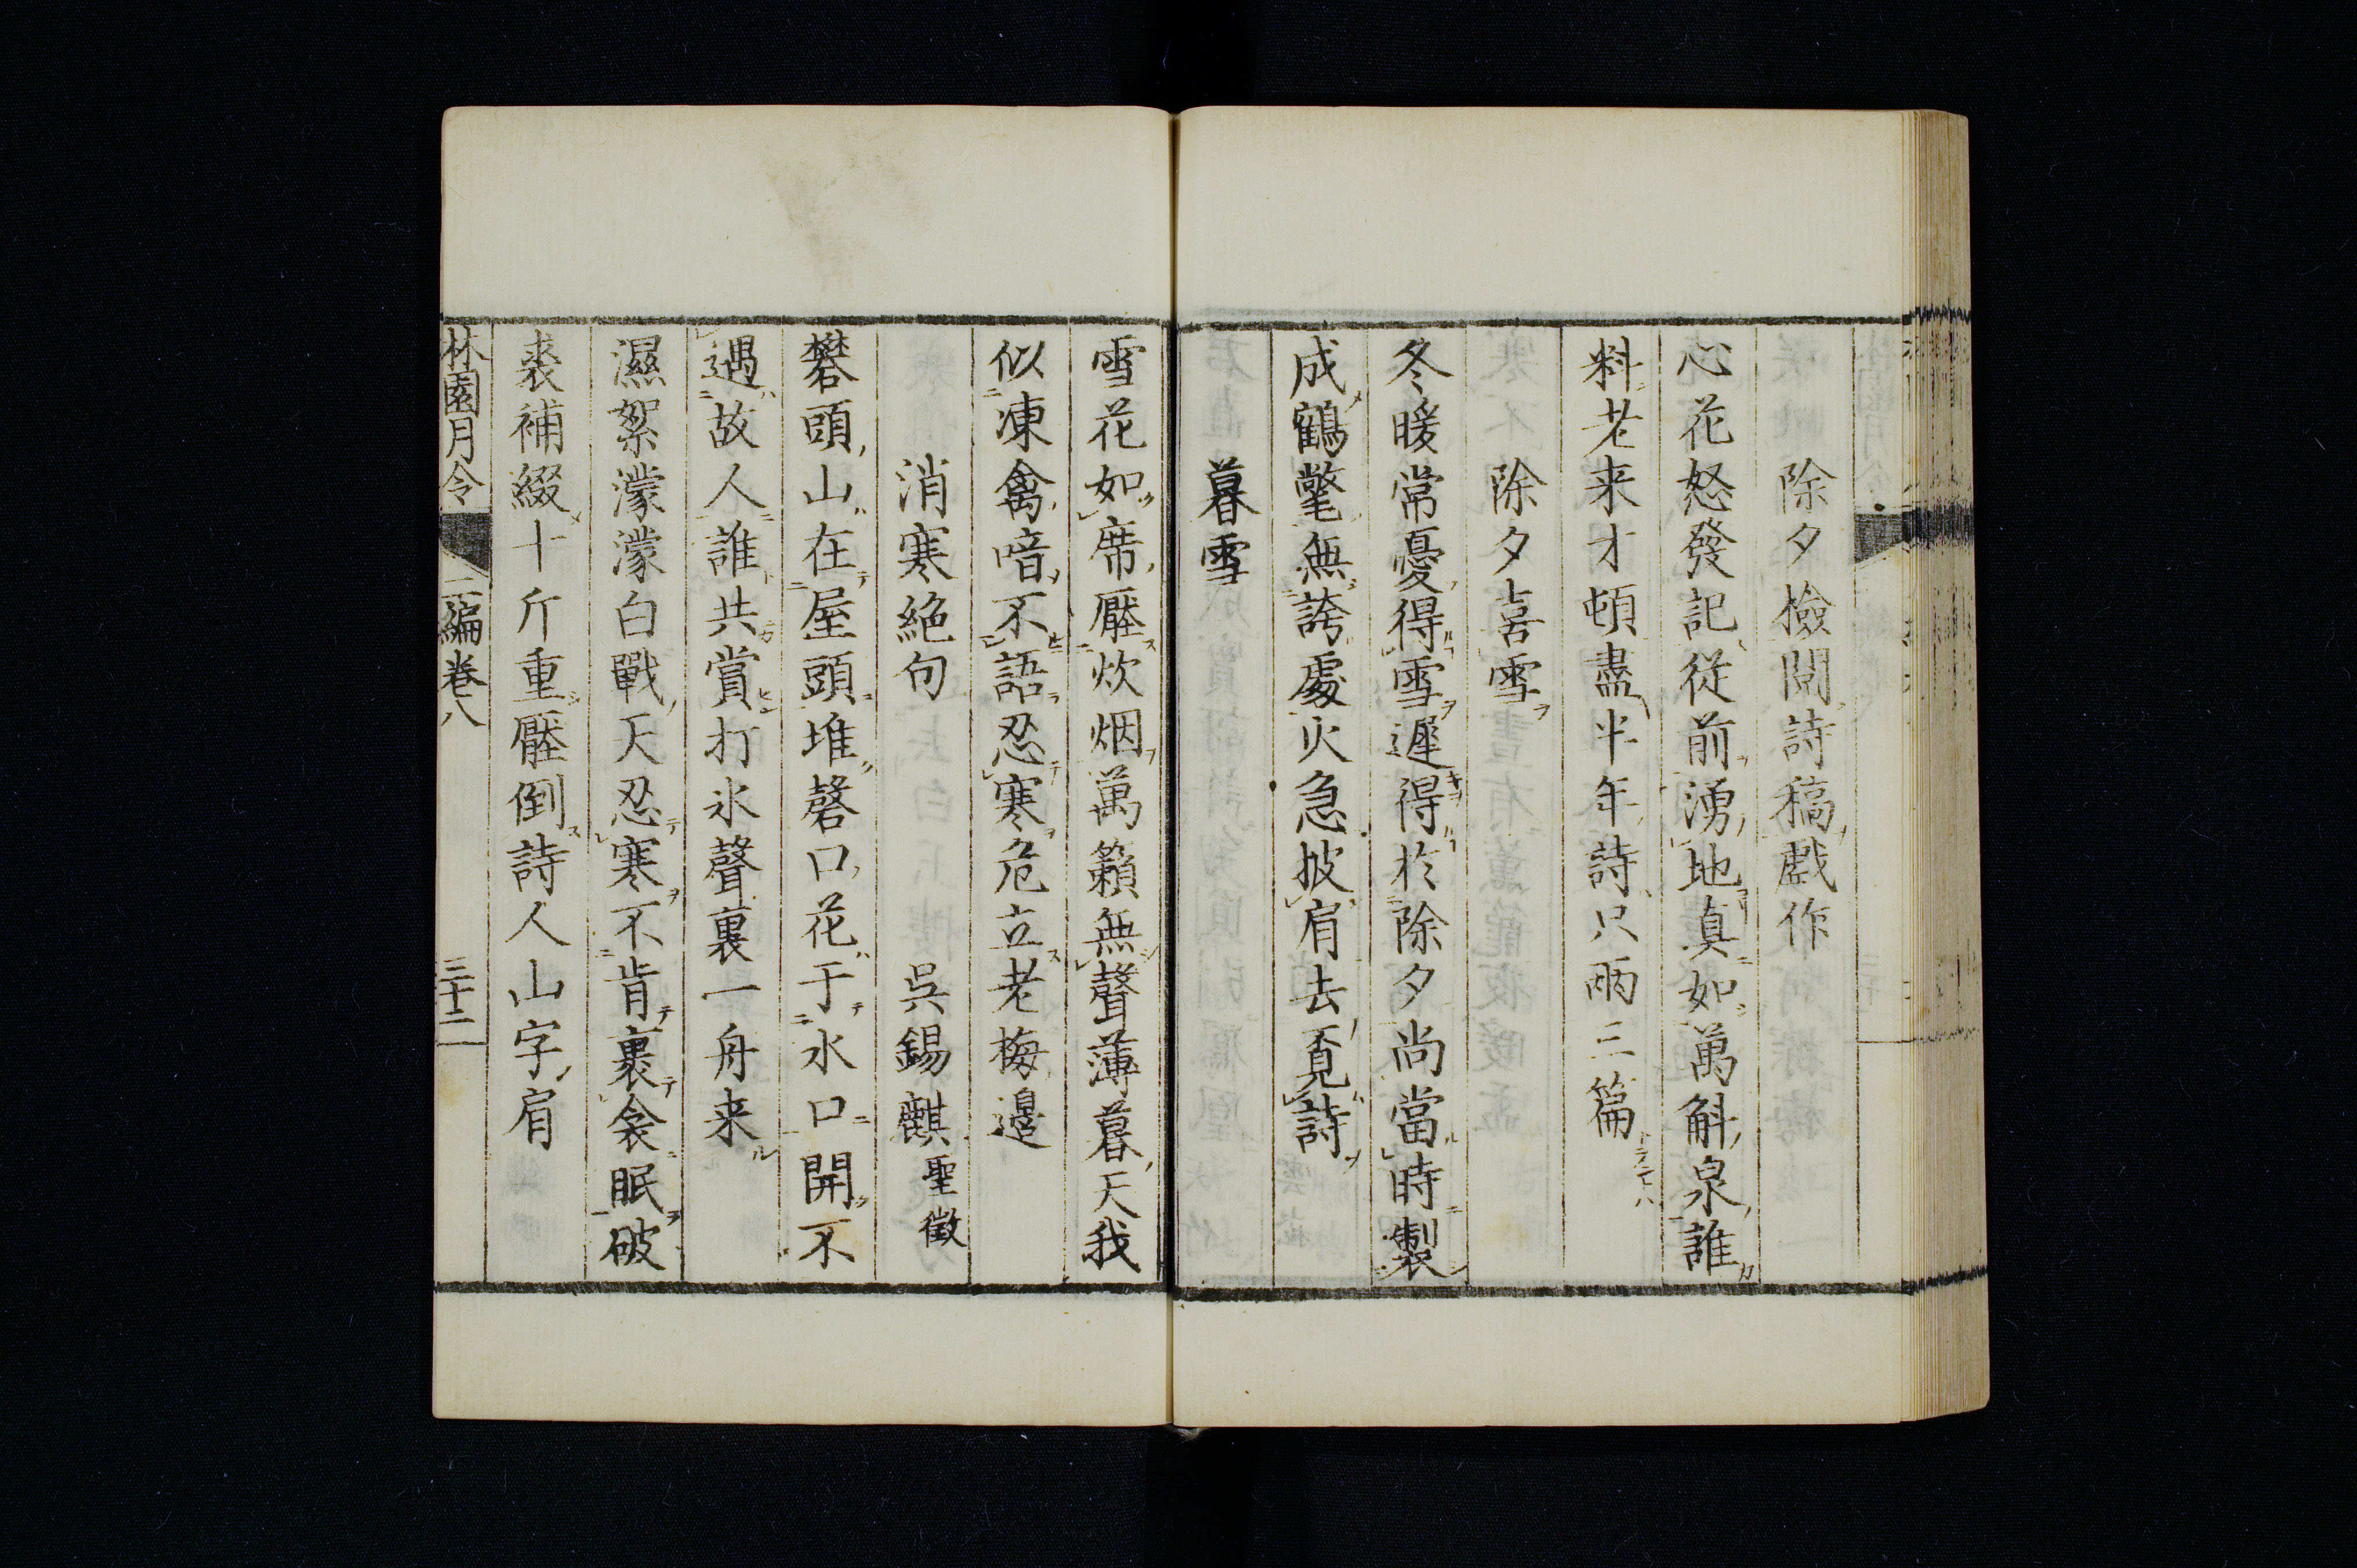 除夕檢閱詩稿戲作
心花怒發記從前湧地真如萬斛泉誰
料老来才頓盡半年詩只兩三篇
除夕喜雪
冬暖常憂得雪遲得於除夕尚當時製
成鶴氅無誇處火急披肩去覓詩
暮雪
雪花如席壓炊烟萬籟無聲薄暮天我
似凍禽喑不語忍寒危立老梅邊
消寒絶句 呉錫麒聖徵
礬頭山在屋頭堆磬口花于水口開不
遇故人誰共賞打氷聲裏一舟来
濕絮濛濛白戰天忍寒不肯裹衾眠破
裘補綴十斤重壓倒詩人山字肩
林園月令 二編卷八 三十二